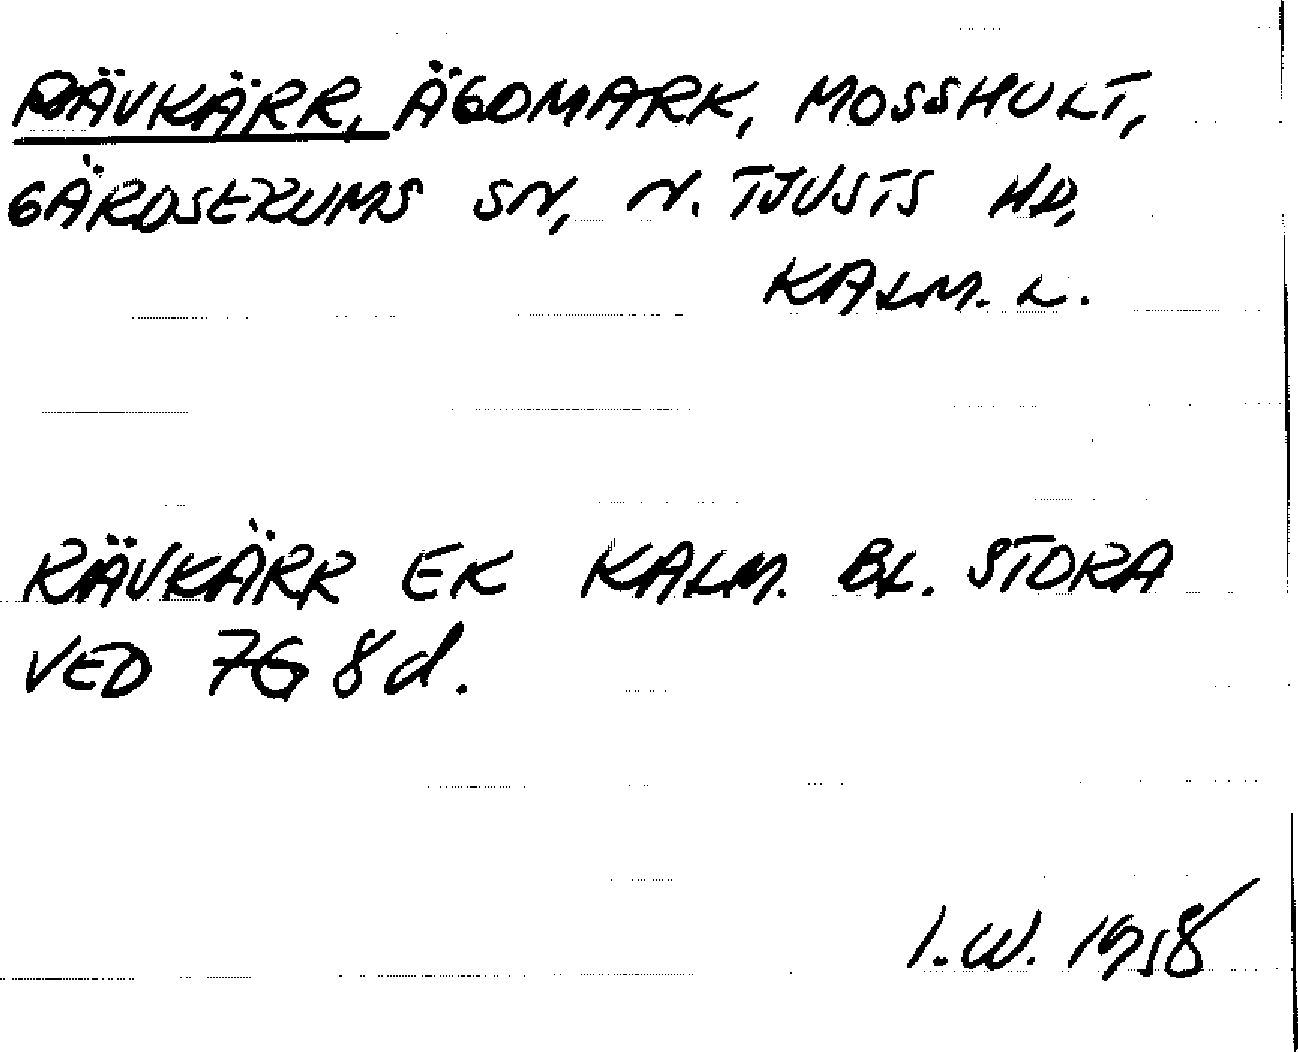 RÄVKÄRR, ÄGOMARK, MOSSHULT,
GÄRDSERUMS SN, N. TJUSTS HD,
KALM. L.
RÄVKÄRR EK KALM. BL. STORA
VED 7G 8d.
I.W. 1958